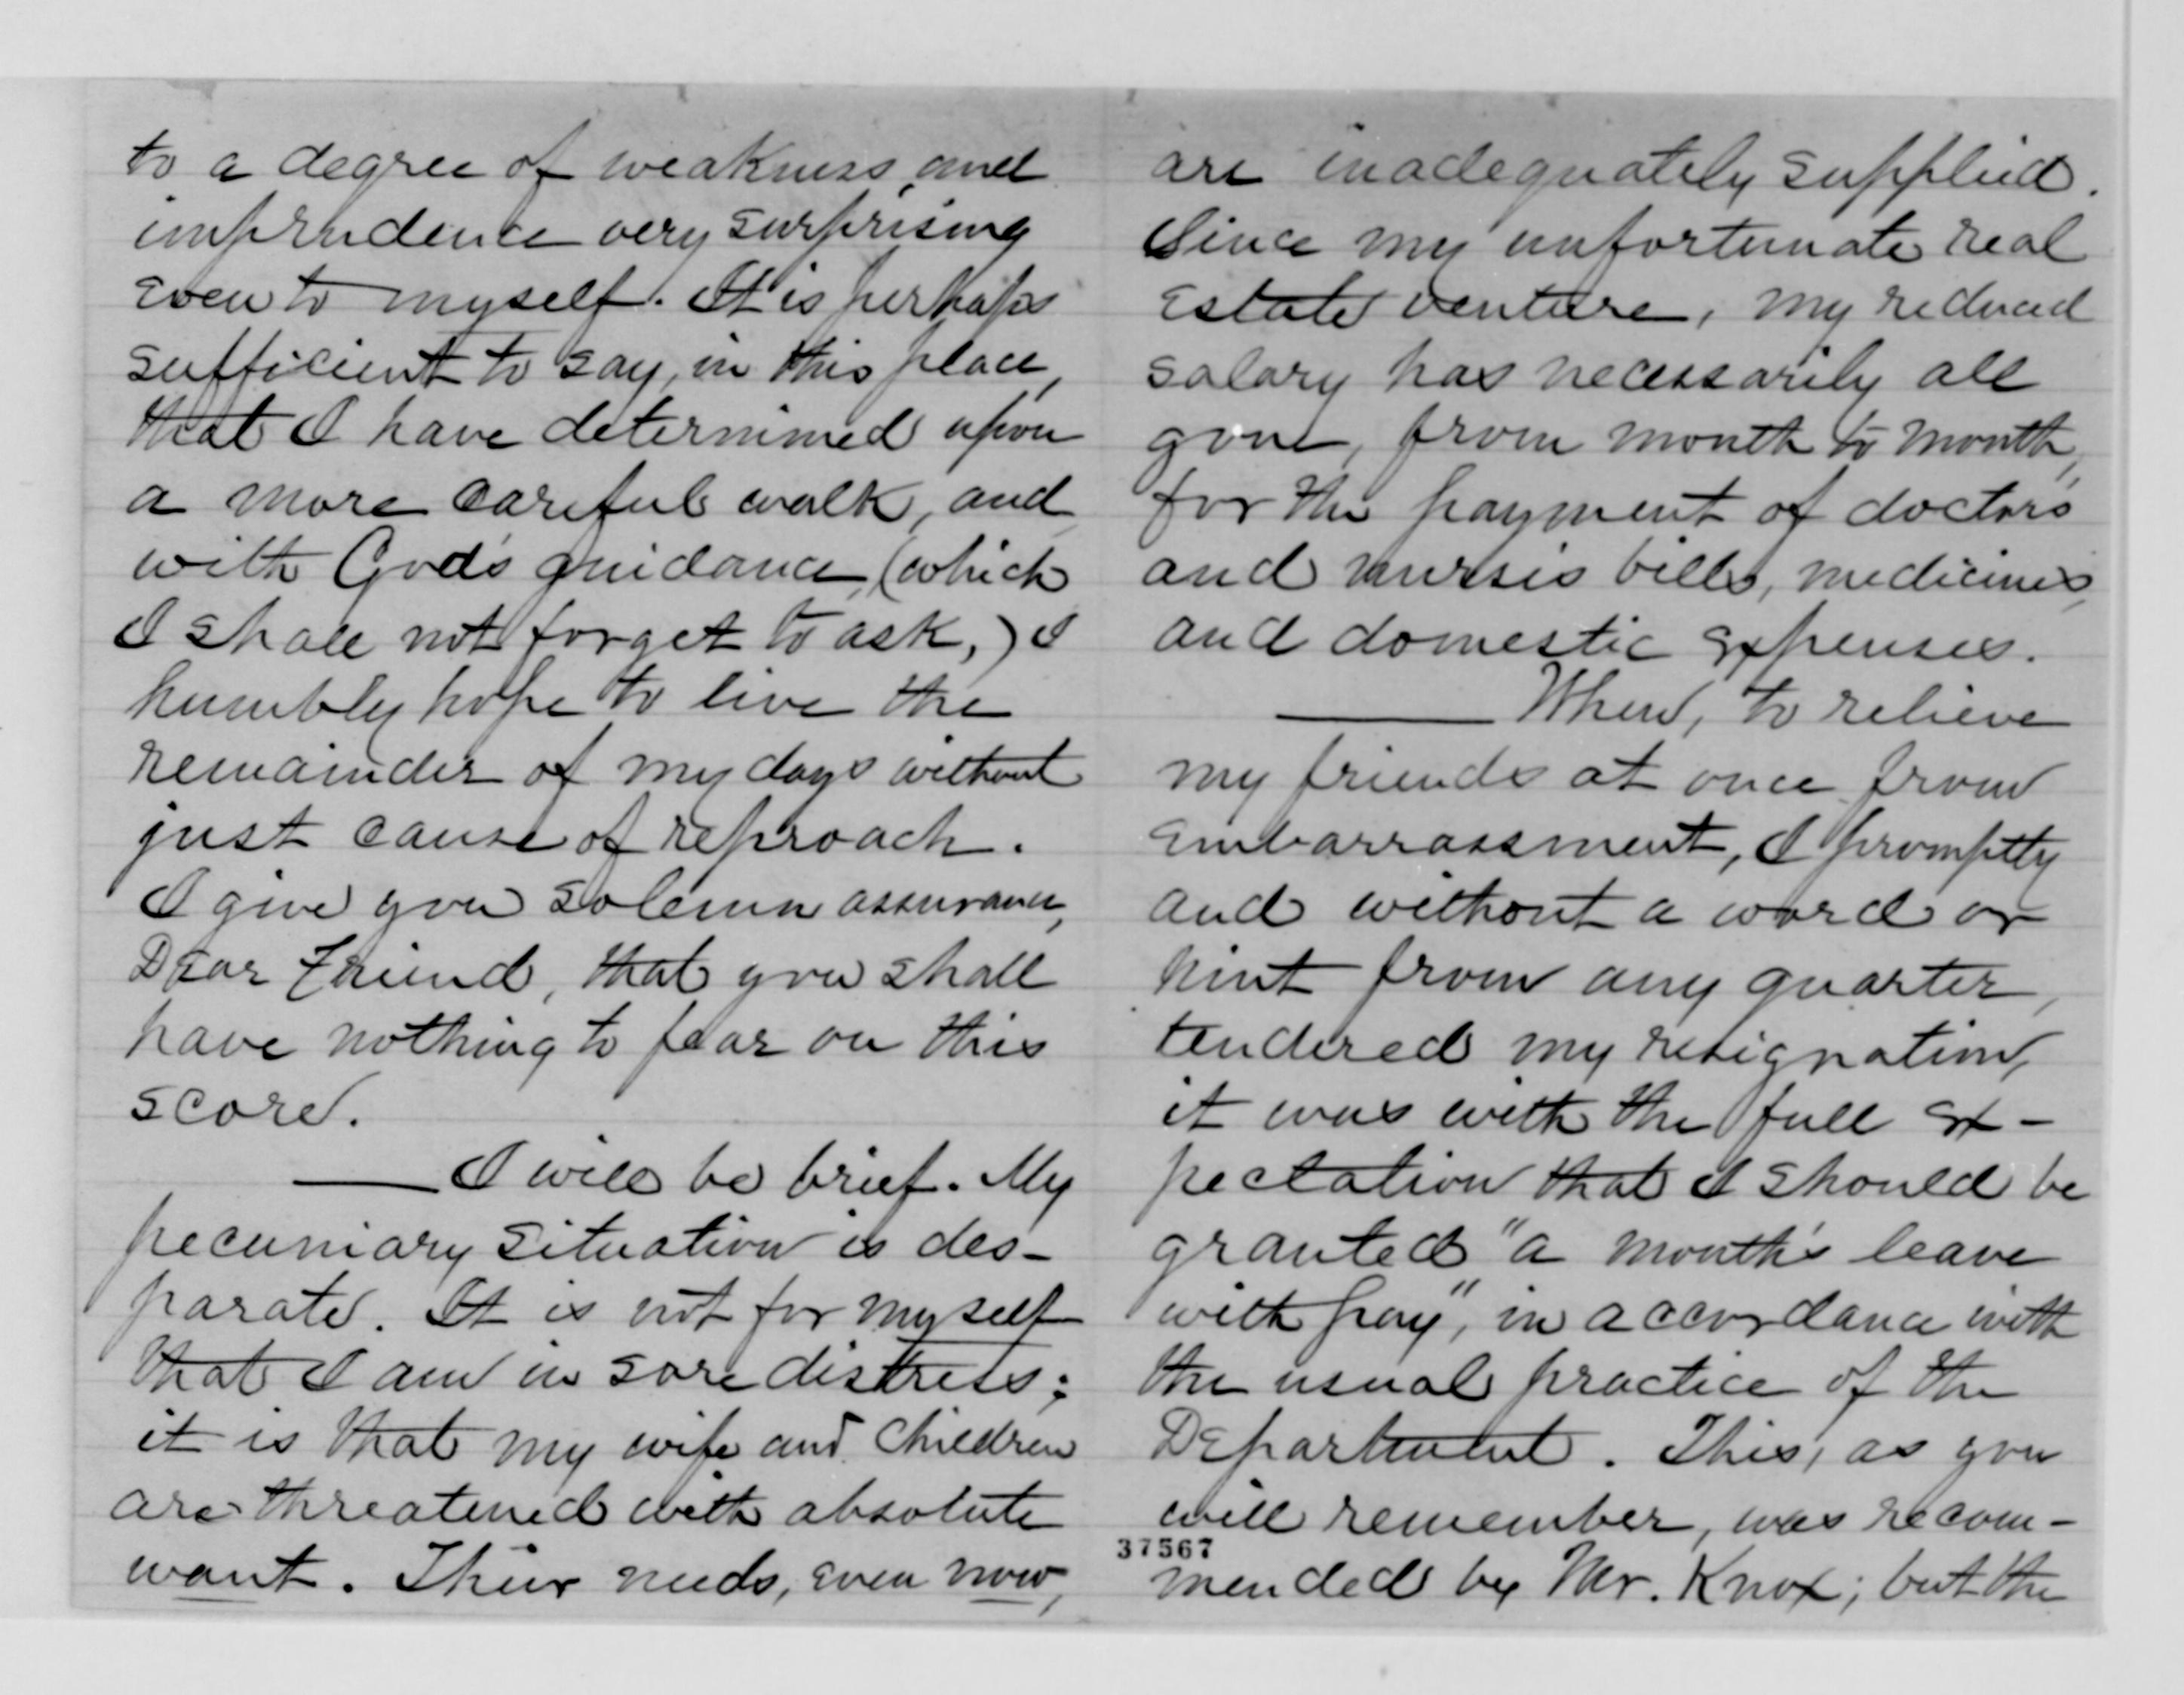 to a degree of weakness, and
imprudence very surprising
even to myself. It is perhaps
sufficient to say, in this place,
that I have determined upon
a more careful walk, and
with God's guidance, (which
I shall not forget to ask,) I
humbly hope to live the
remainder of my days without
just cause of reproach.
I give you solemn assurance,
Dear Friend, that you shall
have nothing to fear on this
score.
—— I will be brief. My
pecuniary situation is des-
parate. It is not for myself
that I am in sore distress;
it is that my wife and children
are threatened with absolute
want. Their needs, even now,
are inadequately supplied.
Since my unfortunate real
estate venture, my reduced
salary has necessarily all
gone, from month to month,
for the payment of doctors'
and nurses bills, medicines,
and domestic expenses.
—— When, to relieve
my friends at once from
embarrassment, I promptly
and without a word or
hint from any quarter,
tendered my resignation,
it was with the full ex-
pectation that I should be
granted "a month's leave
with pay", in accordance with
the usual practice of the
Department. This, as you
will remember, was recom-
37567
mended by Mr. Knox; but the